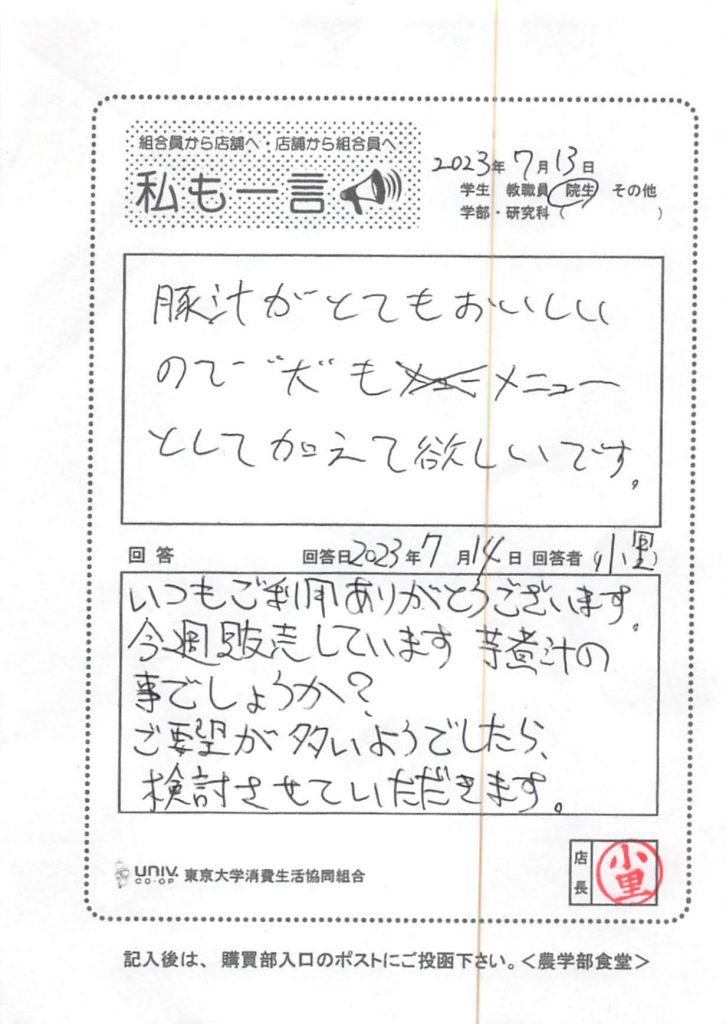 組合員から店舗へ・店舗から組合員へ
私も一言
2023年 7月13日
学生 教職員 院生 その他
学部・研究科( )
豚汁がとてもおいしい
ので"大"も メニュー
として加えて欲しいです。
回答 回答日2023年 7月14日 回答者 小里
いつもご利用ありがとうございます。
今週販売しています 芋煮汁の
事でしょうか?
ご要望が多いようでしたら、
検討させていただきます。
UNIV. CO-OP 東京大学消費生活協同組合
店長
小里
記入後は、購買部入口のポストにご投函下さい。<農学部食堂>